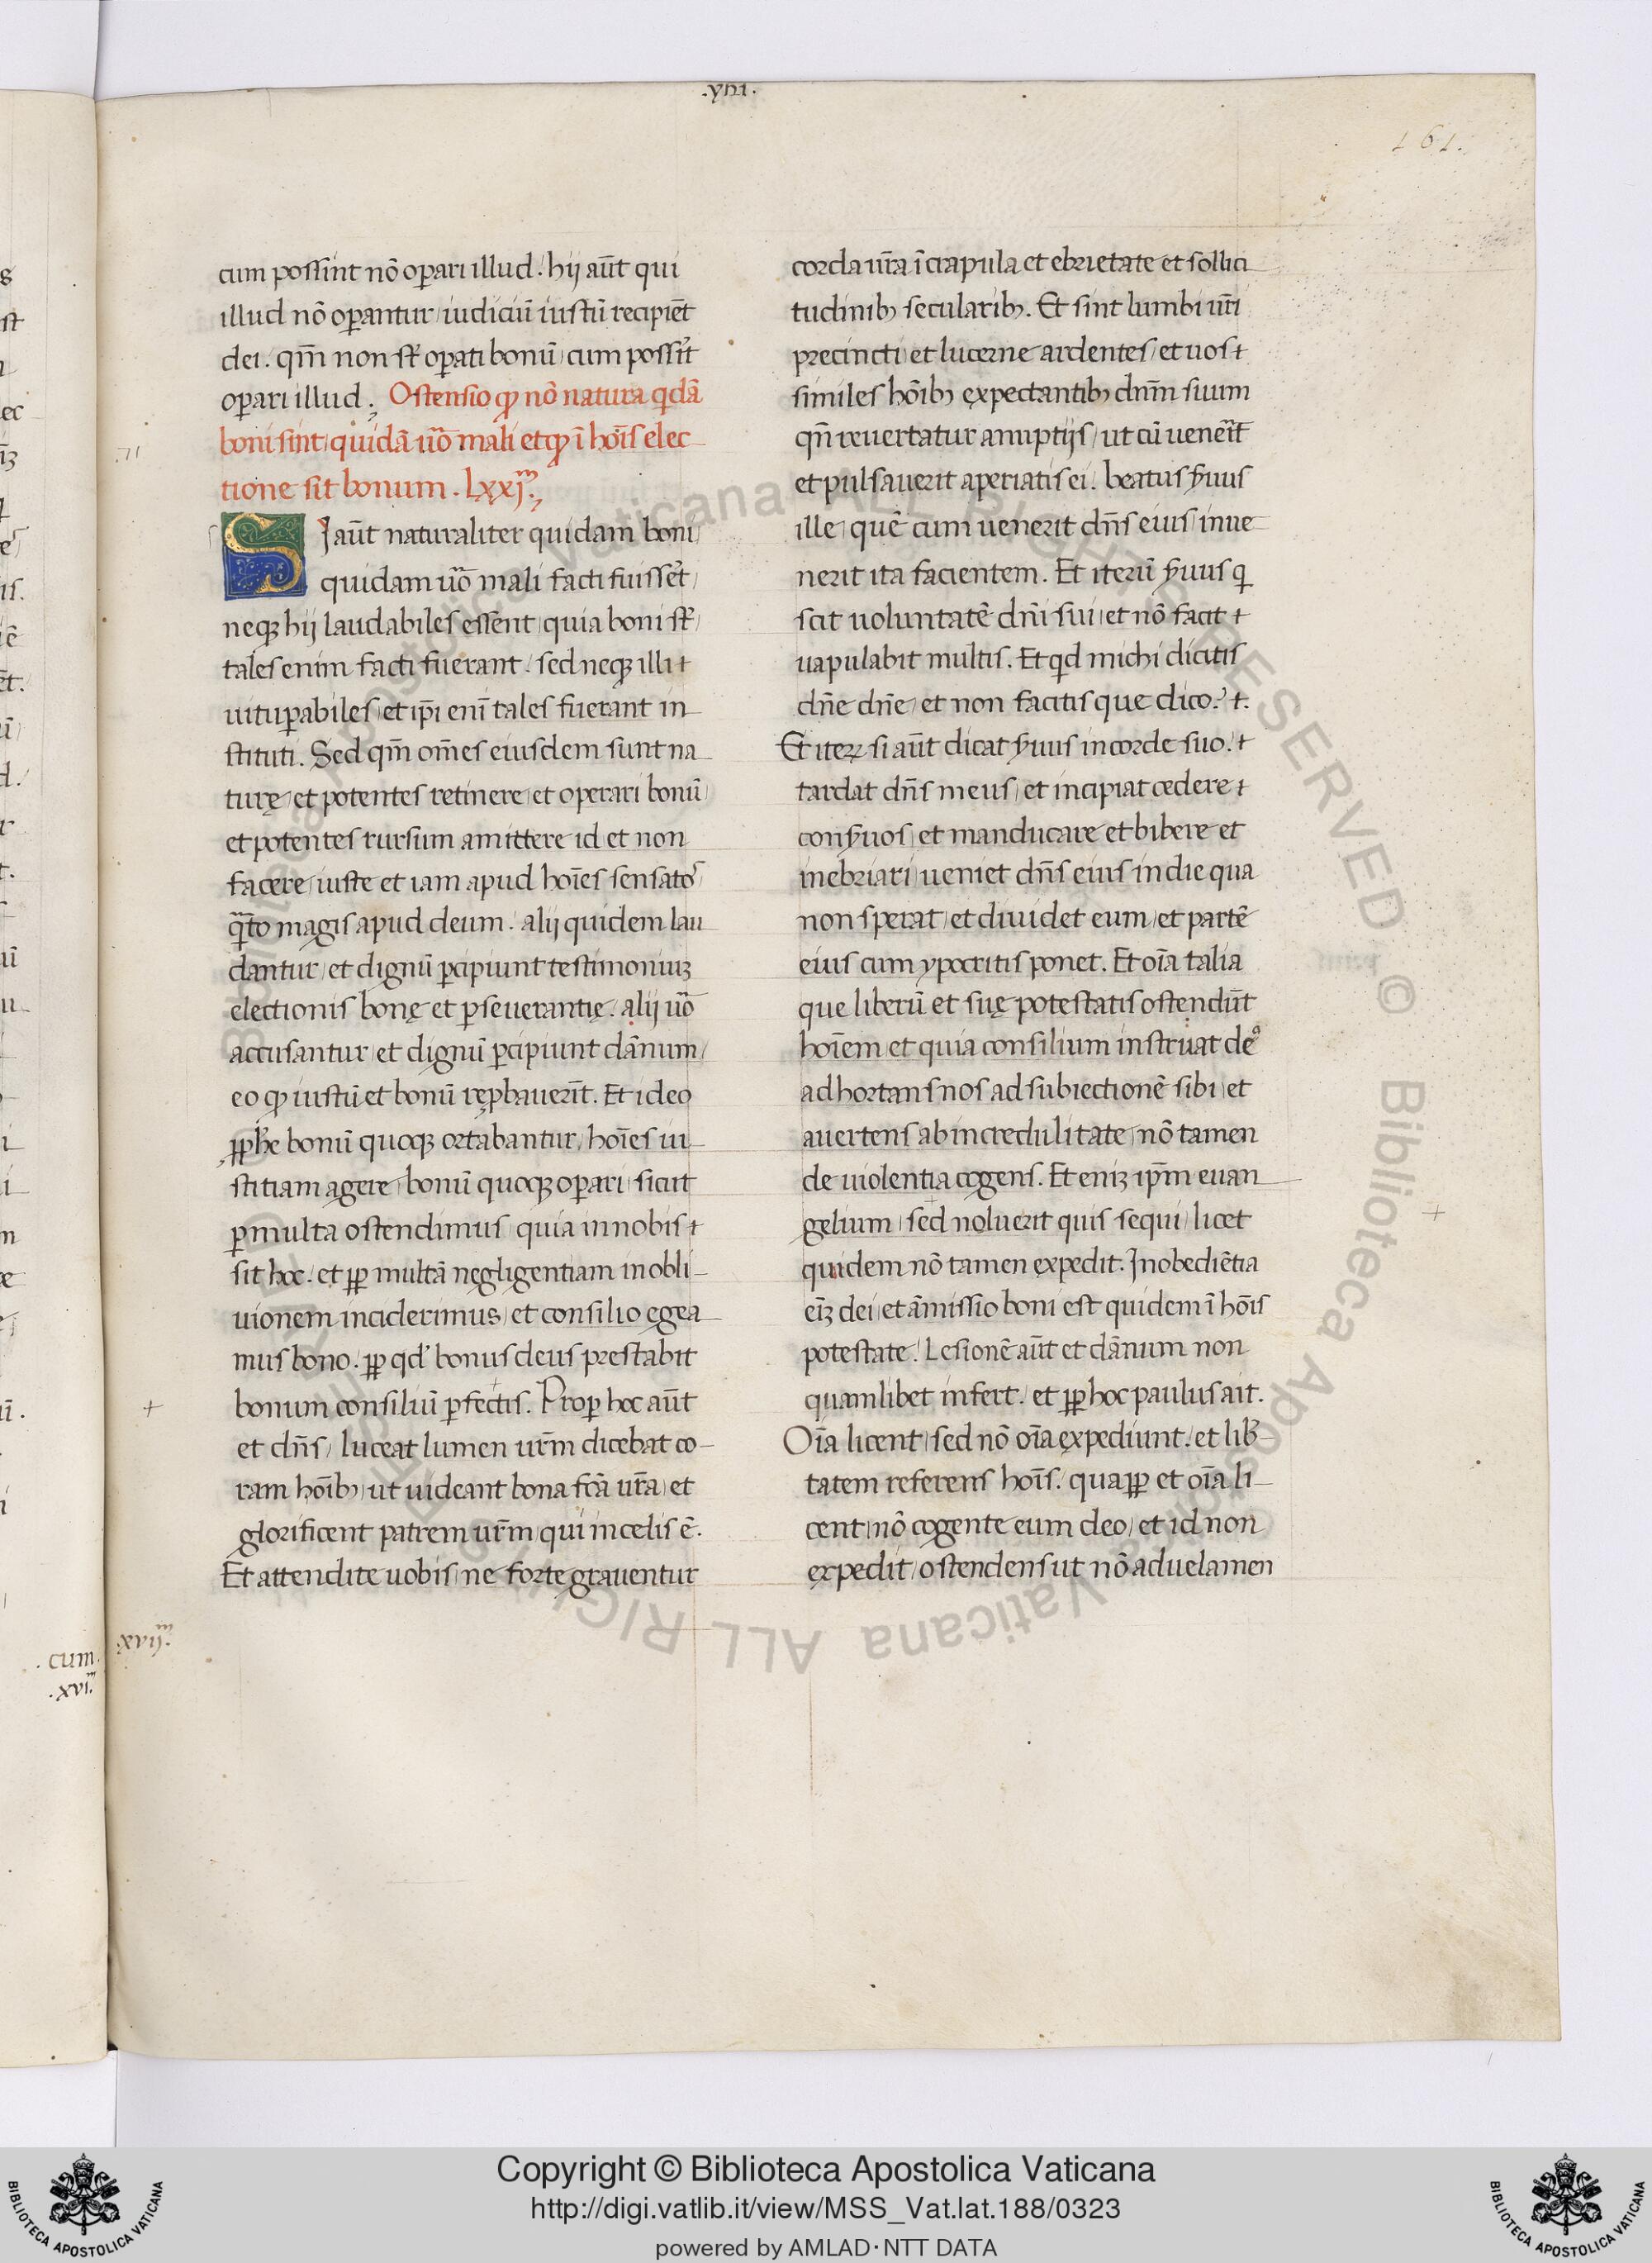 .viii.
161.
cum possint nō oꝑari illud. hij aūt qui
illud nō oꝑantur iudiciū iustū recipiēt
dei. qm̄ non st̄ oꝑati bonū cum possīt
oꝑari illud. Ostensio ꝙ nō natura qdā
boni sint quidā uō mali et ꝙ ī hoīs elec
tione sit bonum. Lxxj.ᵐ
SI aūt naturaliter quidam boni
quidam uō mali facti fuissēt
neqꝫ hij laudabiles essent quia boni st̄
tales enim facti fuerant. sed neqꝫ illi
uituꝑabiles et ip̄i enī tales fuerant in
stituti. Sed qm̄ om̄es eiusdem sunt na
turę et potentes retinere et operari bonū
et potentes rursum amittere id et non
facere iuste et iam apud hoīes sensatos
q̄to magis apud deum. alij quidem lau
dantur et dignū ꝑcipiunt testimoniuꝫ
electionis bonę et ꝑseuerantię. alij uō
accusantur et dignū ꝑcipiunt dānum
eo ꝙ iustū et bonū reꝓbauerīt. Et ideo
ꝓph̄e bonū quoqꝫ ortabantur hoīes iu
stitiam agere bonū quoqꝫ oꝑari sicut
ꝑ multa ostendimus quia in nobis
sit hoc. et ꝓꝑ multā negligentiam in obli
uionem inciderimus et consilio egea
mus bono. ꝓꝑ qd bonus deus prestabit
bonum consiliū ꝑfectis. Proꝑ hoc aūt
et dn̄s luceat lumen ur̄m dicebat co
ram hoībꝫ ut uideant bona fc̄a ur̄a et
glorificent patrem ur̄m qui in celis ē.
Et attendite uobis ne forte grauentur
corda ur̄a ī crapula et ebrietate et sollici
tudinibꝫ secularibꝫ. Et sint lumbi ur̄i
precincti et lucerne ardentes et uos
similes hoībꝫ expectantibꝫ dn̄m suum
qn̄ reuertatur a nuptijs ut cū uenerīt
et pulsauerit aperiatis ei. beatus s̄uus
ille quē cum uenerit dn̄s eius inue
nerit ita facientem. Et iterū s̄uus q
scit uoluntatē dn̄i sui et nō facit
uapulabit multis. Et qd michi dicitis
dn̄e dn̄e et non facitis que dico?
Et iteꝝ si aūt dicat s̄uus in corde suo.
tardat dn̄s meus et incipiat cedere
cons̄uos et manducare et bibere et
inebriari ueniet dn̄s eius in die qua
non sperat et diuidet eum et partē
eius cum ypocritis ponet. Et oīa talia
que liberū et suę potestatis ostendūt
hoīem et quia consilium instruat deꝰ
adhortans nos ad subiectionē sibi et
auertens ab incredulitate nō tamen
de uiolentia cogens. Et eniꝫ ip̄m euan
gelium sed noluerit quis sequi licet
quidem nō tamen expedit. Inobediētia
eīꝫ dei et āmissio boni est quidem ī hoīs
potestate. Lesionē aūt et dānum non
quamlibet infert. et ꝓꝑ hoc paulus ait.
Oīa licent sed nō oīa expediunt. et lib̄
tatem referens hoīs. quaꝓꝑ et oīa li
cent nō cogente eum deo et id non
expedit ostendens ut nō ad uelamen
71
xvij.ᵐ
.cum.
.xvi.ᵐ
Copyright © Biblioteca Apostolica Vaticana
http://digi.vatlib.it/view/MSS_Vat.lat.188/0323
powered by AMLAD·NTT DATA
BIBLIOTECA APOSTOLICA VATICANA
BIBLIOTECA APOSTOLICA VATICANA